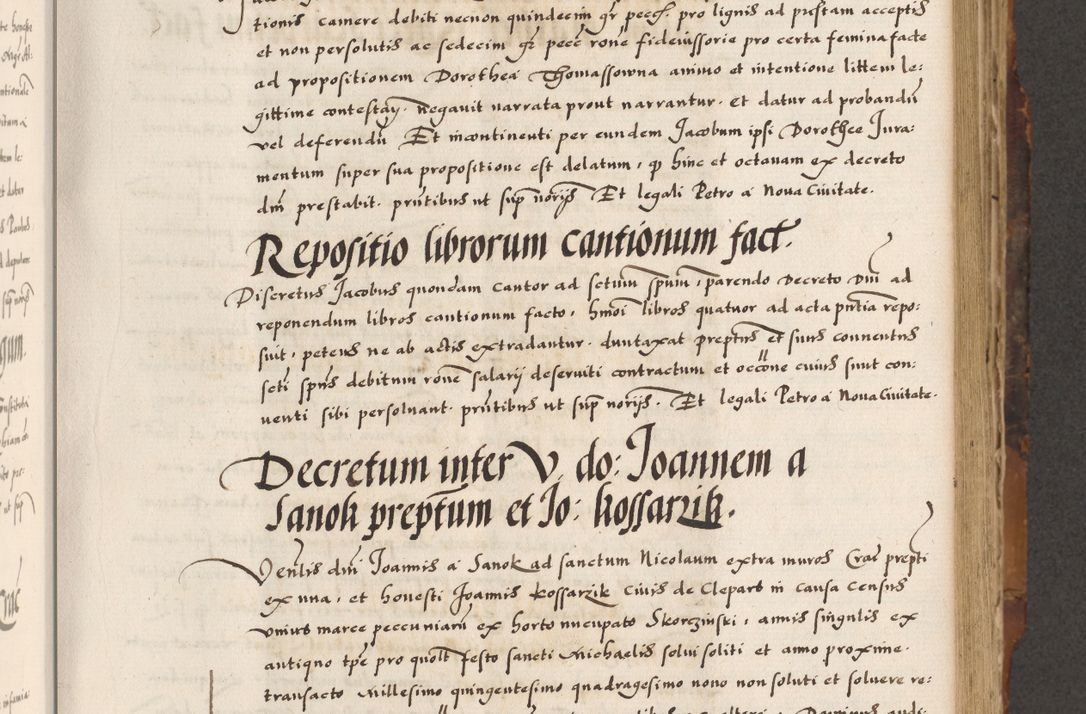 tionis camere debiti necnon quindecim gr pecc. pro lignis ad prestam acceptis
et non persolutis ac sedecim gr pecc rone fideiussorie pro certa femina facte
ad propositionem Dorothea Thomassowna animo et intentione littem le:
gittime contestan. negavit narrata prout narrantur. et datur ad probandu
vel deferendu Et incontinenti per eundem Jacobum ipsi Dorothee Jura:
mentum super sua propositione est delatum, qd hinc et octavam ex decreto
dni prestabit. pntibus ut sup noriis Et legali Petro a Nova Civitate.
Repositio librorum cantionum fact.
Discretus Jacobus quondam cantor ad sctum spum, parendo Decreto Dni ad
reponendum libros cantionum facto, hmoi libros quatuor ad acta pntia repo:
suit, petens ne ab actis extradantur. duntaxat preptus et suus conventus
scti spus debitum rone salarij deserviti contractum et occone cuius sunt con:
venti sibi persolvant. pntibus ut sup noriis. Et legali Petro a Nova Civitate.
Decretum inter V. do: Joannem a
Sanok preptum et Jo: kossarzik.
Venlis dni Joannis a Sanok ad sanctum Nicolaum extra muros Crac prepti
ex una, et honesti Joannis kossarzik civis de Clepars in causa census
unius marce peccuniaru ex horto nucupato Skorczinski, annis singulis ex
antiquo tpe pro quolt festo sancti Michaelis solvi soliti et anno proxime
transacto Millesimo quingentesimo quadragesimo nono non soluti et solvere re: